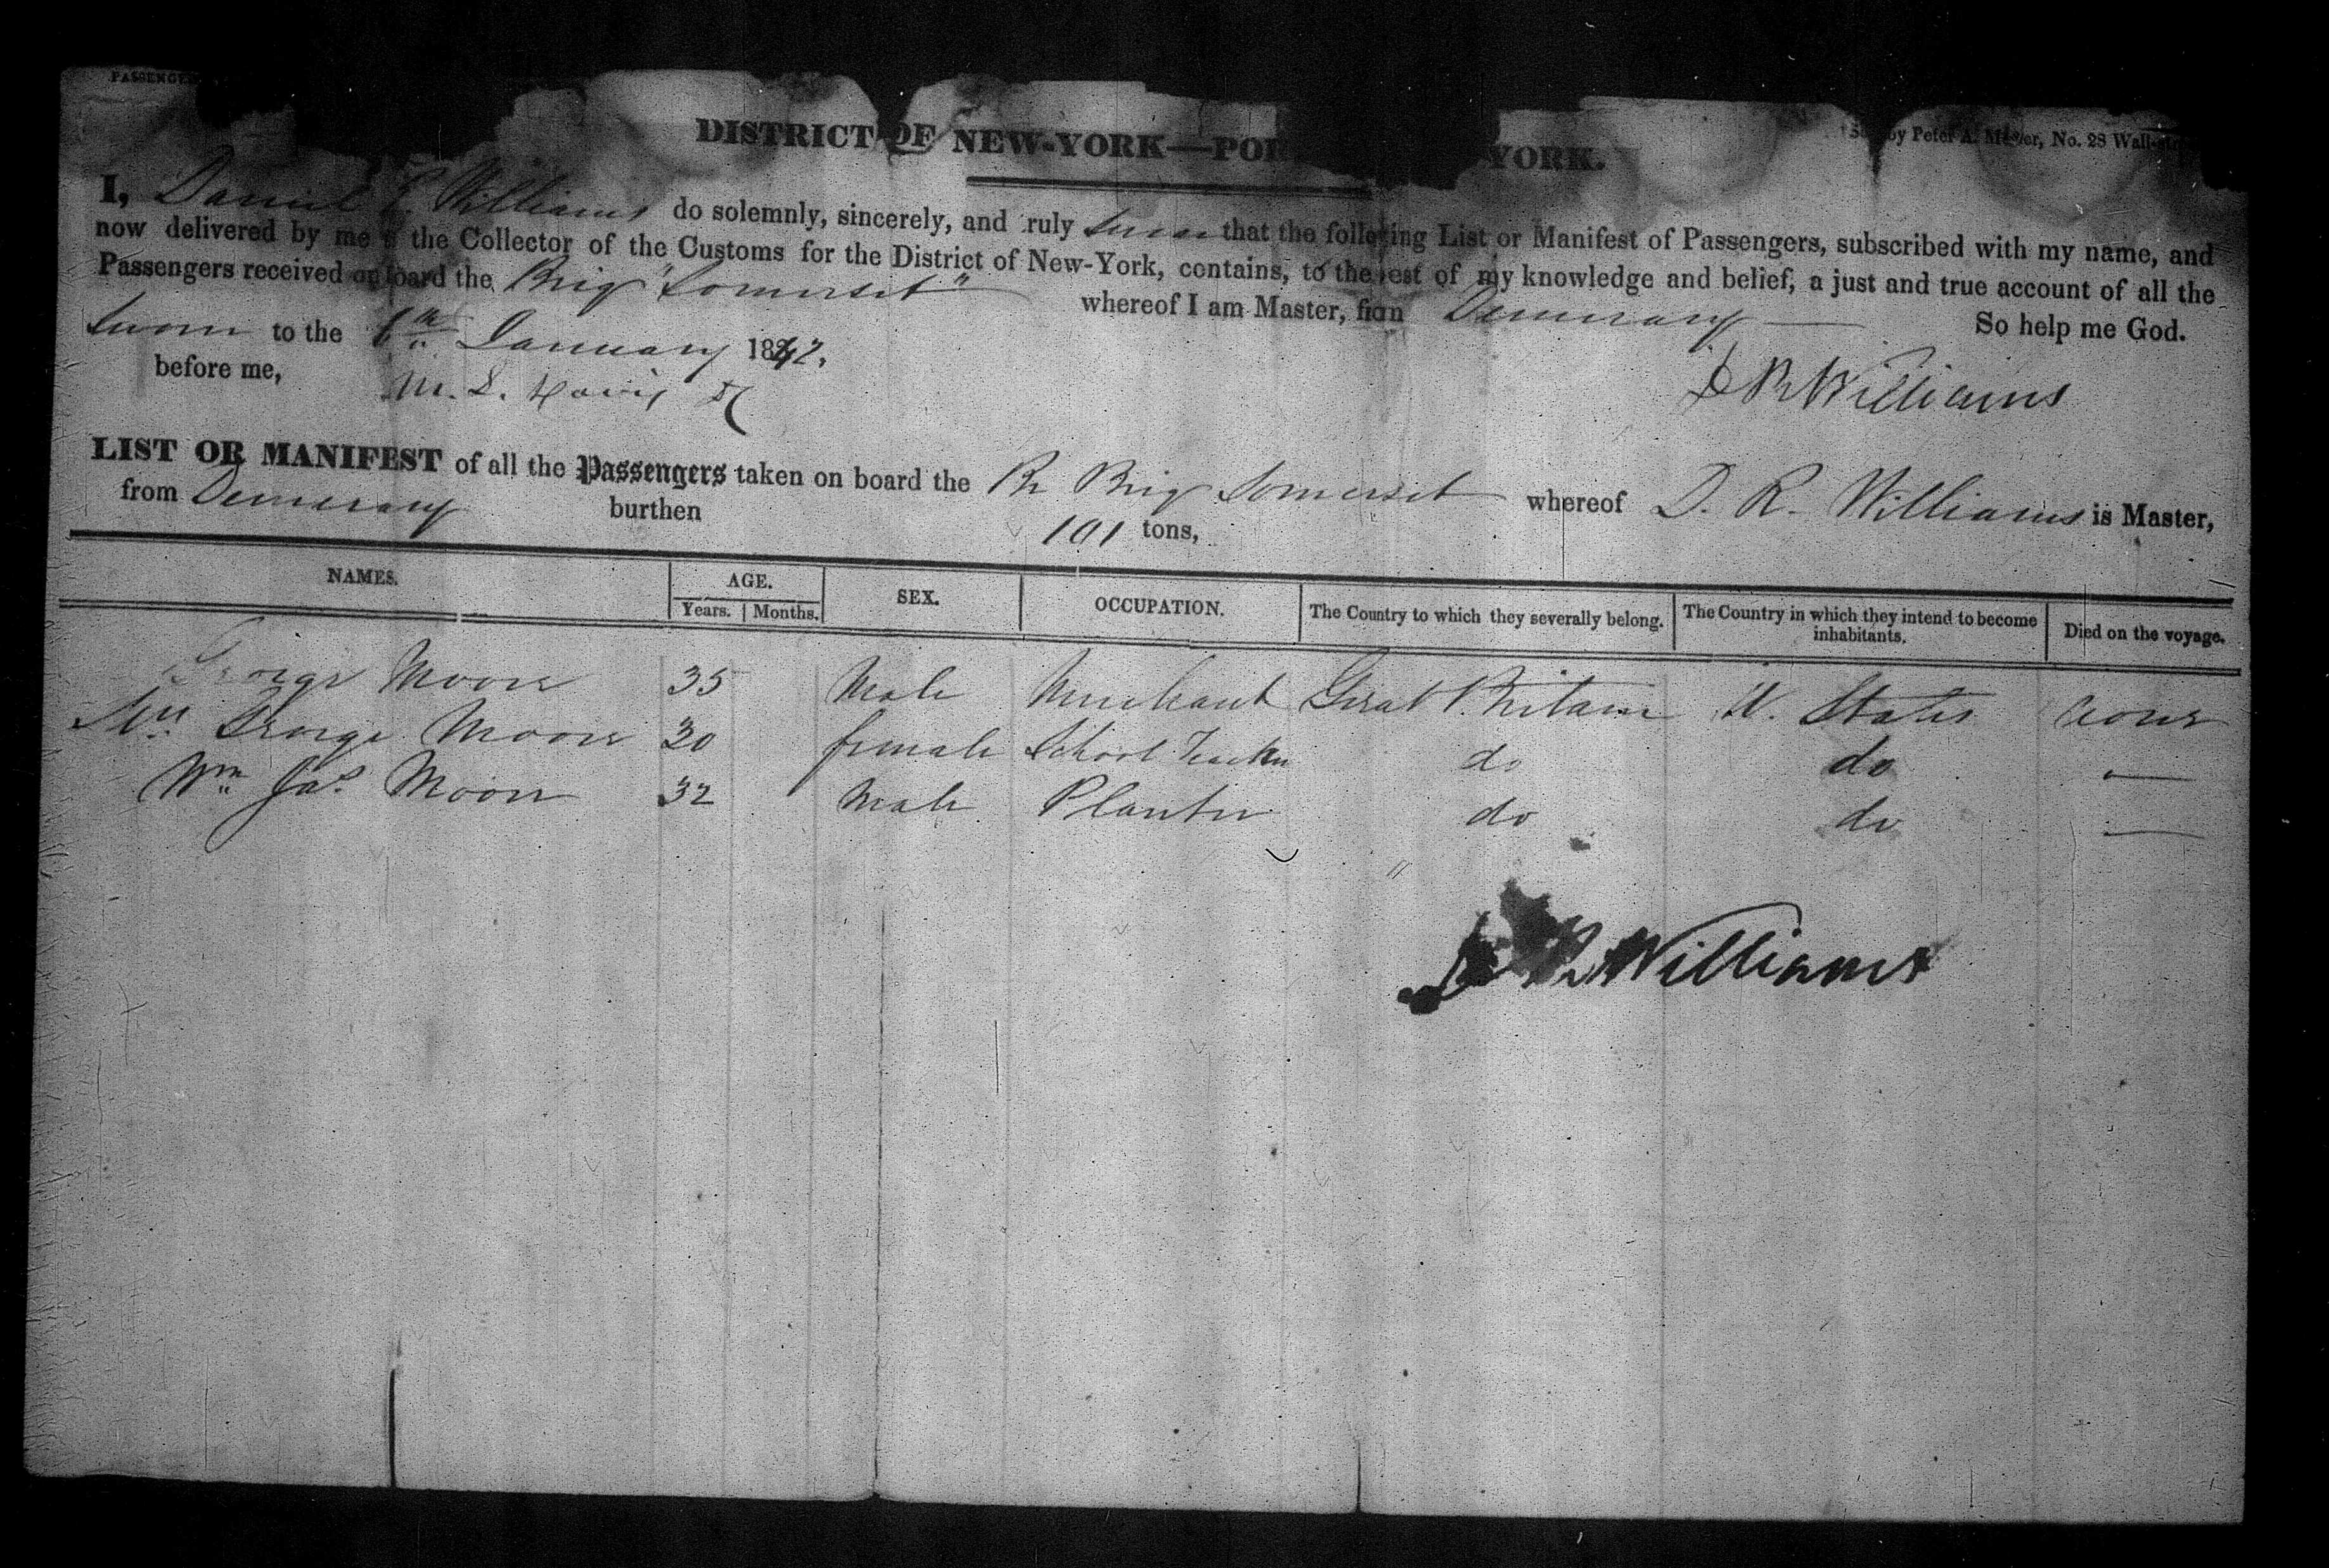 PASSENGE
DISTRICT OF NEW-YORK—POR YORK.
by Peter A. Mesier, No. 28 Wall-st
I, Daniel R. Williams do solemnly, sincerely, and ruly swear that the following List or Manifest of Passengers, subscribed with my name, and
now delivered by me the Collector of the Customs for the District of New-York, contains, to the best of my knowledge and belief, a just and true account of all the
Passengers received on board the Brig "Somerset" whereof I am Master, from Demerary
So help me God.
Sworn to the 6th January 1842.
before me,
D R Williams
LIST OR MANIFEST of all the Passengers taken on board the Br Brig Somerset whereof D. R. Williams is Master,
from Demerary burthen 101 tons,
NAMES. AGE. SEX. OCCUPATION. The Country to which they severally belong. The Country in which they intend to become inhabitants. Died on the voyage.
Years. Months.
George Moore 35 Male Merchant Great Britain U. States none
Mrs George Moore 30 female School Teacher do do —
Wm Jas Moore 32 Male Planter do do —
D R Williams